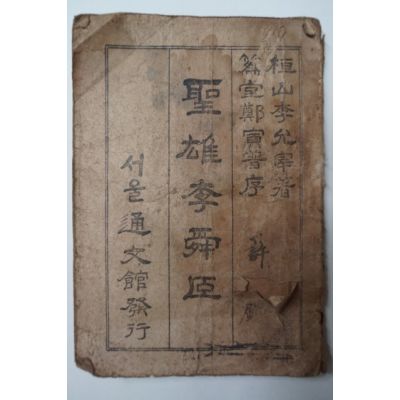 桓山李允宰著
爲堂鄭寅普序
許
聖雄李舜臣
서울通文館發行